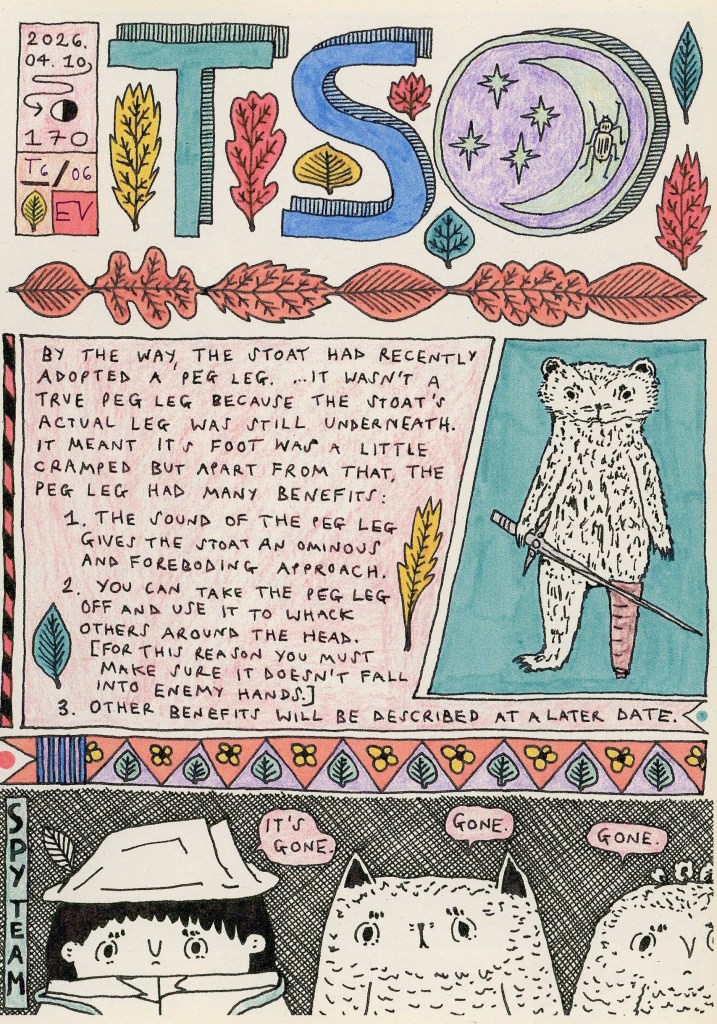 2026.
04.10
170
T6/06
EV
TSO
BY THE WAY, THE STOAT HAD RECENTLY
ADOPTED A PEG LEG. ...IT WASN'T A
TRUE PEG LEG BECAUSE THE STOAT'S
ACTUAL LEG WAS STILL UNDERNEATH.
IT MEANT IT'S FOOT WAS A LITTLE
CRAMPED BUT APART FROM THAT, THE
PEG LEG HAD MANY BENEFITS:
1. THE SOUND OF THE PEG LEG
GIVES THE STOAT AN OMINOUS
AND FOREBODING APPROACH.
2. YOU CAN TAKE THE PEG LEG
OFF AND USE IT TO WHACK
OTHERS AROUND THE HEAD.
[FOR THIS REASON YOU MUST
MAKE SURE IT DOESN'T FALL
INTO ENEMY HANDS.]
3. OTHER BENEFITS WILL BE DESCRIBED AT A LATER DATE.
SPY TEAM
IT'S
GONE.
GONE.
GONE.